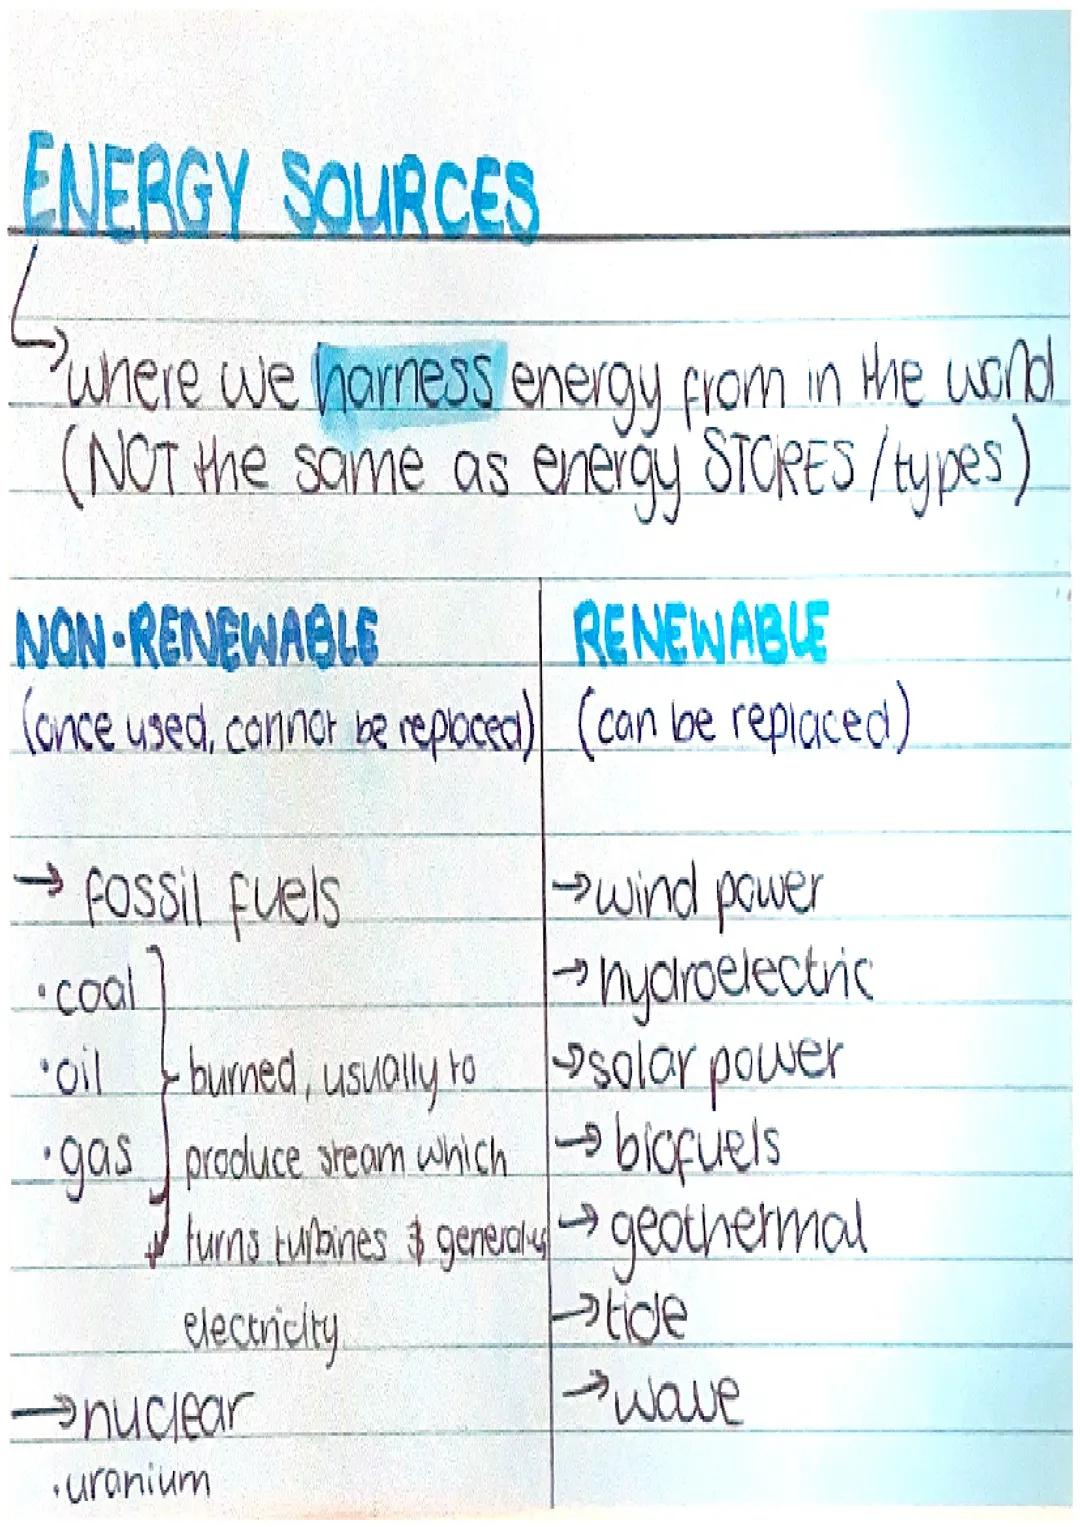 ENERGY SOURCES
→where we harness energy from in the world
(NOT the same as energy STORES/types)
NON-RENEWABLE
(once used, cannot be replaced)
→ fossil fuels
•coal
•oil
•gas
burned, usually to
produce steam which
turns turbines & generates
electricity
→nuclear
•uranium
RENEWABLE
(can be replaced)
→wind power
→hydroelectric
→solar power
→biofuels
→geothermal
→tide
→wave